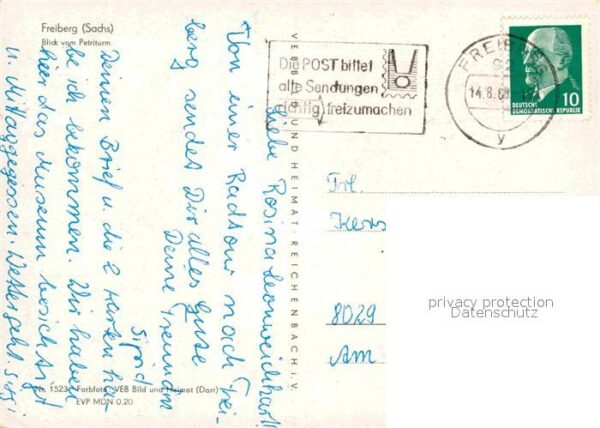 Freiberg (Sachs)
Blick vom Petriturm
Liebe Rosina
Von einer Radtour nach Frei-
berg sendet Dir alles Gute
Deine Freundin
Sigrid
Deinen Brief u. die 2 Karten ha-
be ich bekommen. Wir haben
hier das Museum besichtigt
u. Mittaggegessen
VEB BILD UND HEIMAT · REICHENBACH I. V.
Nr. 1523 Farbfoto: VEB Bild und Heimat (Darr)
EVP MDN 0,20
Die POST bittet
alle Sendungen
richtig freizumachen
FREIBERG
92
14.8.
y
10
DEUTSCHE
DEMOKRATISCHE REPUBLIK
Frl.
8029
Am
privacy protection
Datenschutz